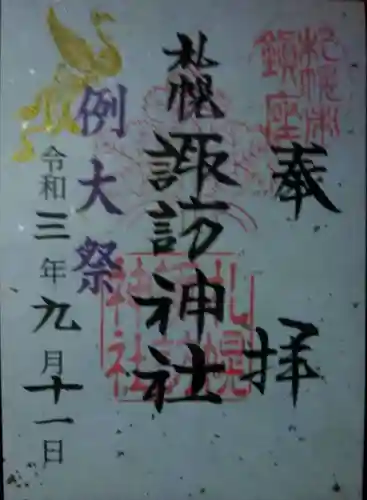 奉拝
札幌諏訪神社
例大祭
令和三年九月十一日
札幌諏訪神社